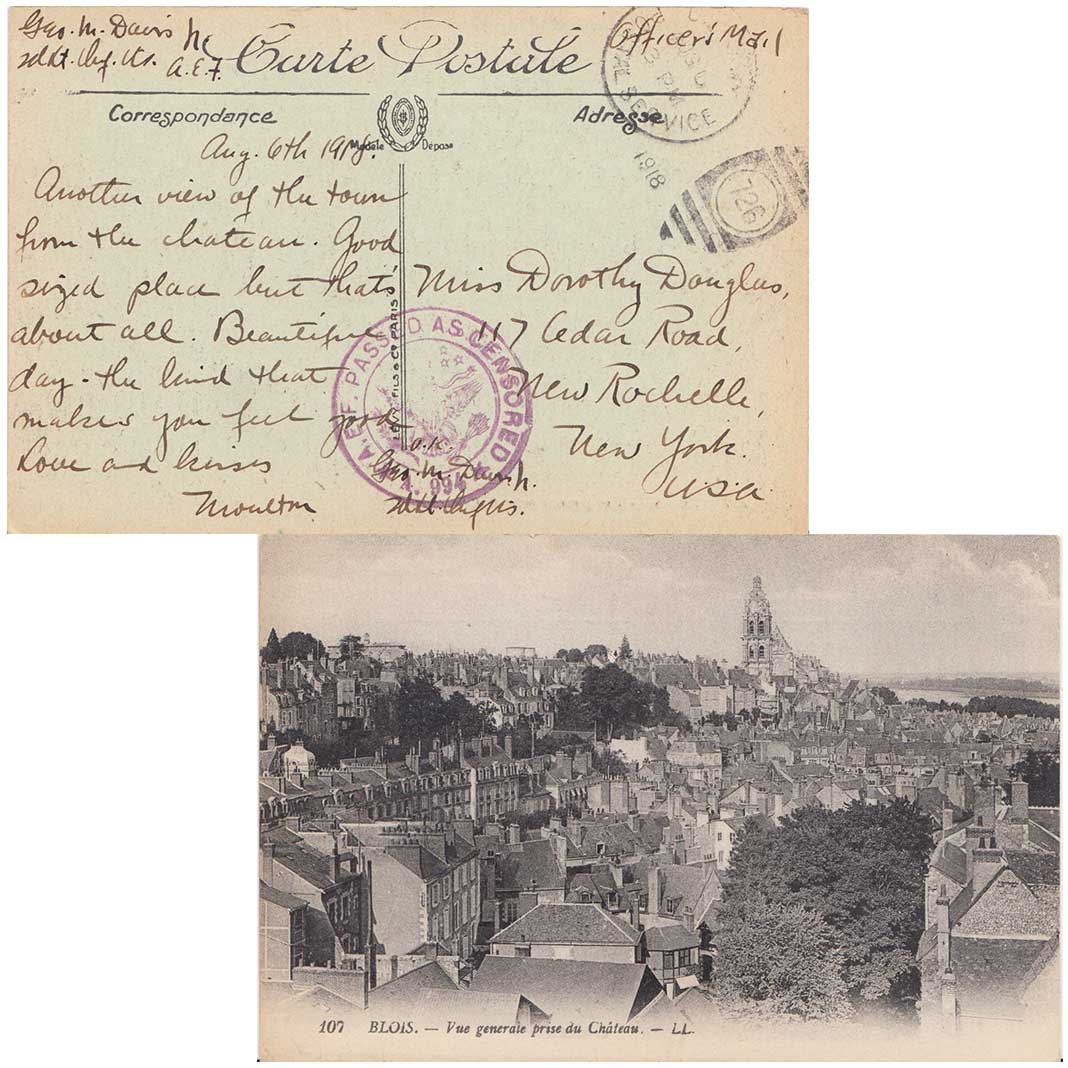 Geo. M. Davis Jr.
2d Lt. Inf. U.S.
A.E.F.
Officer's Mail
Carte Postale
Correspondance
Adresse
Modèle Déposé
POSTAL SERVICE
PM
1918
726
Aug. 6th 1918.
Another view of the town
from the chateau. Good
sized place but that's
about all. Beautiful
day - the kind that
makes you feel good
Love and kisses
Moulton
Miss Dorothy Douglas,
117 Cedar Road,
New Rochelle,
New York.
U.S.A.
FILS & Cie PARIS
A.E.F. PASSED AS CENSORED
A. 994
O.K.
Geo. M. Davis Jr.
2d Lt. Inf. U.S.
107 BLOIS. — Vue generale prise du Château. — LL.